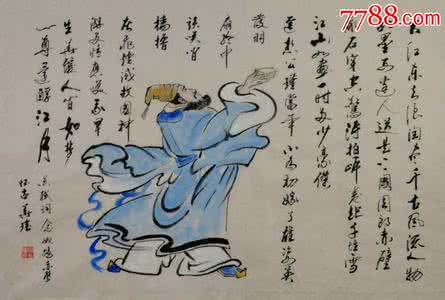 7788.com
大江东去浪淘尽千古风流人物
故垒西边人道是三國周郎赤壁
乱石穿空惊涛拍岸卷起千堆雪
江山如画一时多少豪傑
遥想公瑾當年小乔初嫁了雄姿英
發羽
扇纶巾
谈笑间
樯橹
灰飛烟滅故国神
游多情應笑我早
生華髮人间如梦
一尊還酹江月
苏轼词念奴娇赤壁
怀古